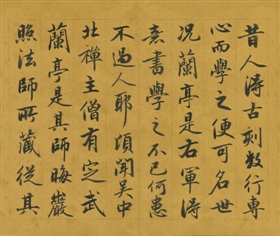 昔人得古刻數行專
心而學之便可名世
况蘭亭是右軍得
意書學之不已何患
不過人耶頃聞吳中
北禪主僧有定武
蘭亭是其師晦巖
照法師所藏從其